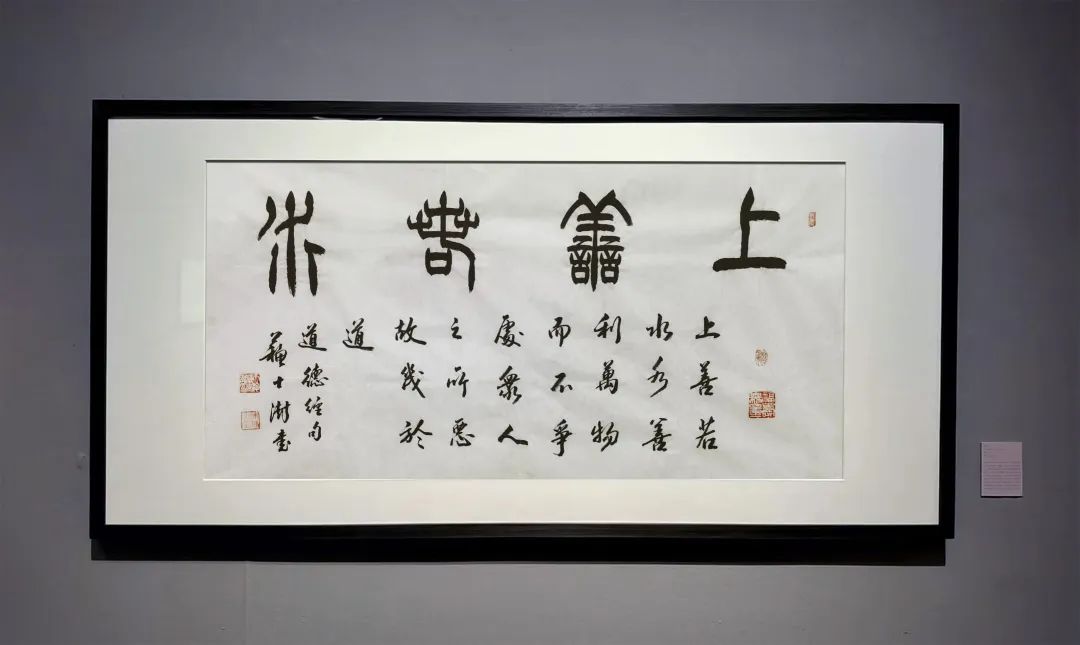 上善若水
上善若
水水善
利萬物
而不爭
處衆人
之所惡
故幾於
道
道德經句
蘇士澍書